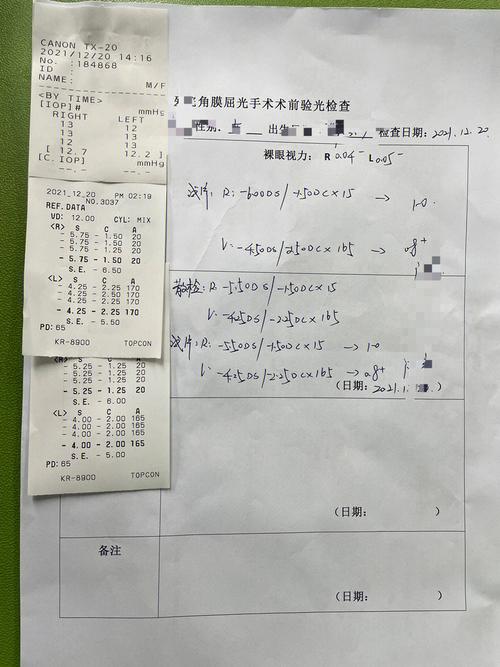 CANON TX-20
2021/12/20 14:16
No.: 184868
ID :
NAME: M/F
<BY TIME>
[IOP]# mmHg
RIGHT LEFT
13 12
13 12
13 12
[ 12.7 12.2 ]
[C.IOP] mmHg
--.- --.-
2021_12_20 PM 02:19
NO.3037
REF.DATA
VD: 12.00 CYL: MIX
<R> S C A
- 5.75 - 1.50 20
- 5.75 - 1.50 20
- 5.75 - 1.25 20
- 5.75 - 1.50 20
S.E. - 6.50
<L> S C A
- 4.25 - 2.25 170
- 4.25 - 2.50 170
- 4.25 - 2.25 170
- 4.25 - 2.25 170
S.E. - 5.50
PD: 65
KR-8900 TOPCON
<R> S C A
- 5.25 - 1.25 20
- 5.25 - 1.25 20
- 5.25 - 1.25 20
- 5.25 - 1.25 20
S.E. - 6.00
<L> S C A
- 4.00 - 2.00 165
- 4.00 - 2.00 165
- 4.00 - 2.00 165
- 4.00 - 2.00 165
S.E. - 5.00
PD: 65
KR-8900 TOPCON
角膜屈光手术术前验光检查
性别: 出生 检查日期: 2021.12.20
裸眼视力: R 0.04⁻ L 0.05⁻
R: -6.00DS/-1.50DC×15 → 1.0
L: -4.50DS/-2.50DC×165 → 0.8⁺
散检: R: -5.50DS/-1.50DC×15
L: -4.25DS/-2.25DC×165
R: -5.50DS/-1.50DC×15 → 1.0
L: -4.25DS/-2.25DC×165 → 0.8⁺
(日期: 2021.1 )
(日期: )
备注
(日期: )